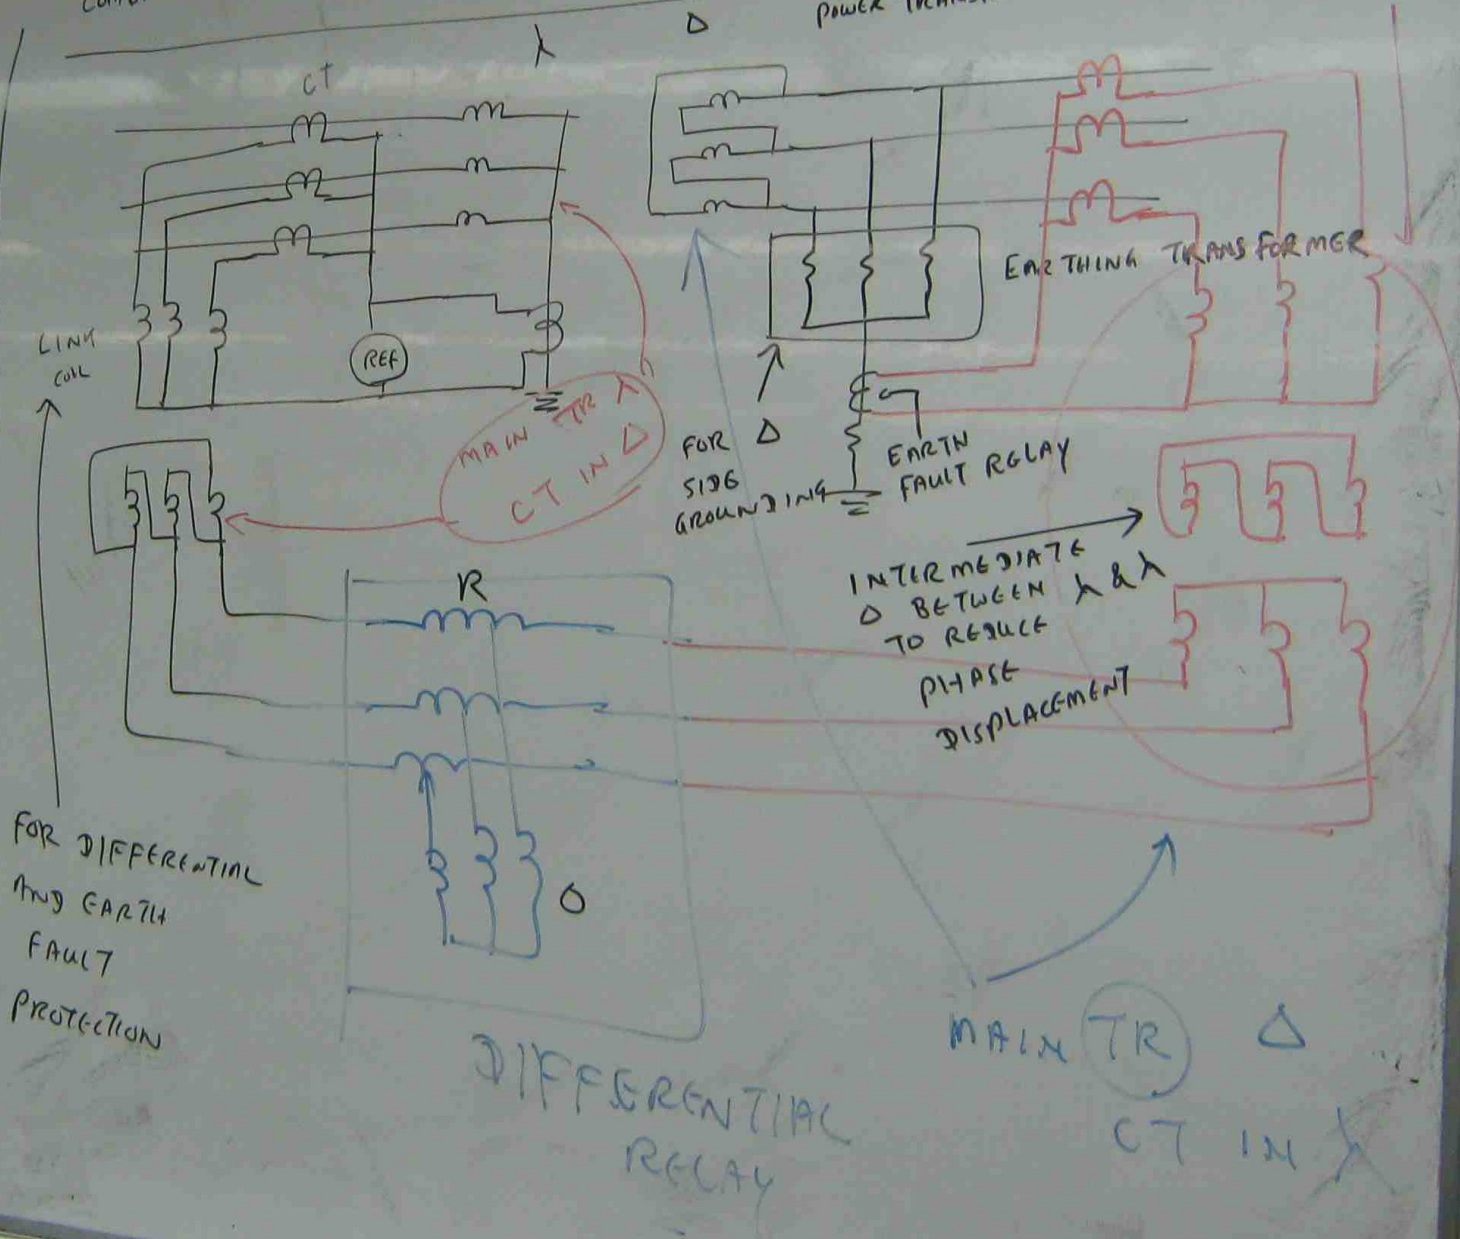 POWER
λ
Δ
CT
EARTHING TRANSFORMER
LINK
COIL
REF
MAIN TR λ
CT IN Δ
FOR Δ
SIDE
GROUNDING
EARTH
FAULT RELAY
INTERMEDIATE
Δ BETWEEN λ & λ
TO REDUCE
PHASE
DISPLACEMENT
R
O
FOR DIFFERENTIAL
AND EARTH
FAULT
PROTECTION
DIFFERENTIAL
RELAY
MAIN TR Δ
CT IN λ